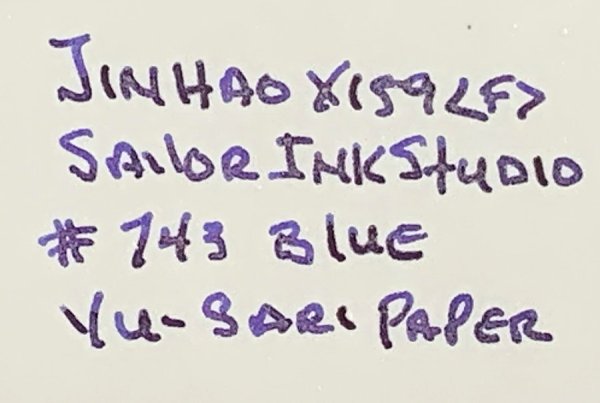 JINHAO X159 <F>
SAILOR INK STUDIO
# 743 BLUE
YU-SARI PAPER